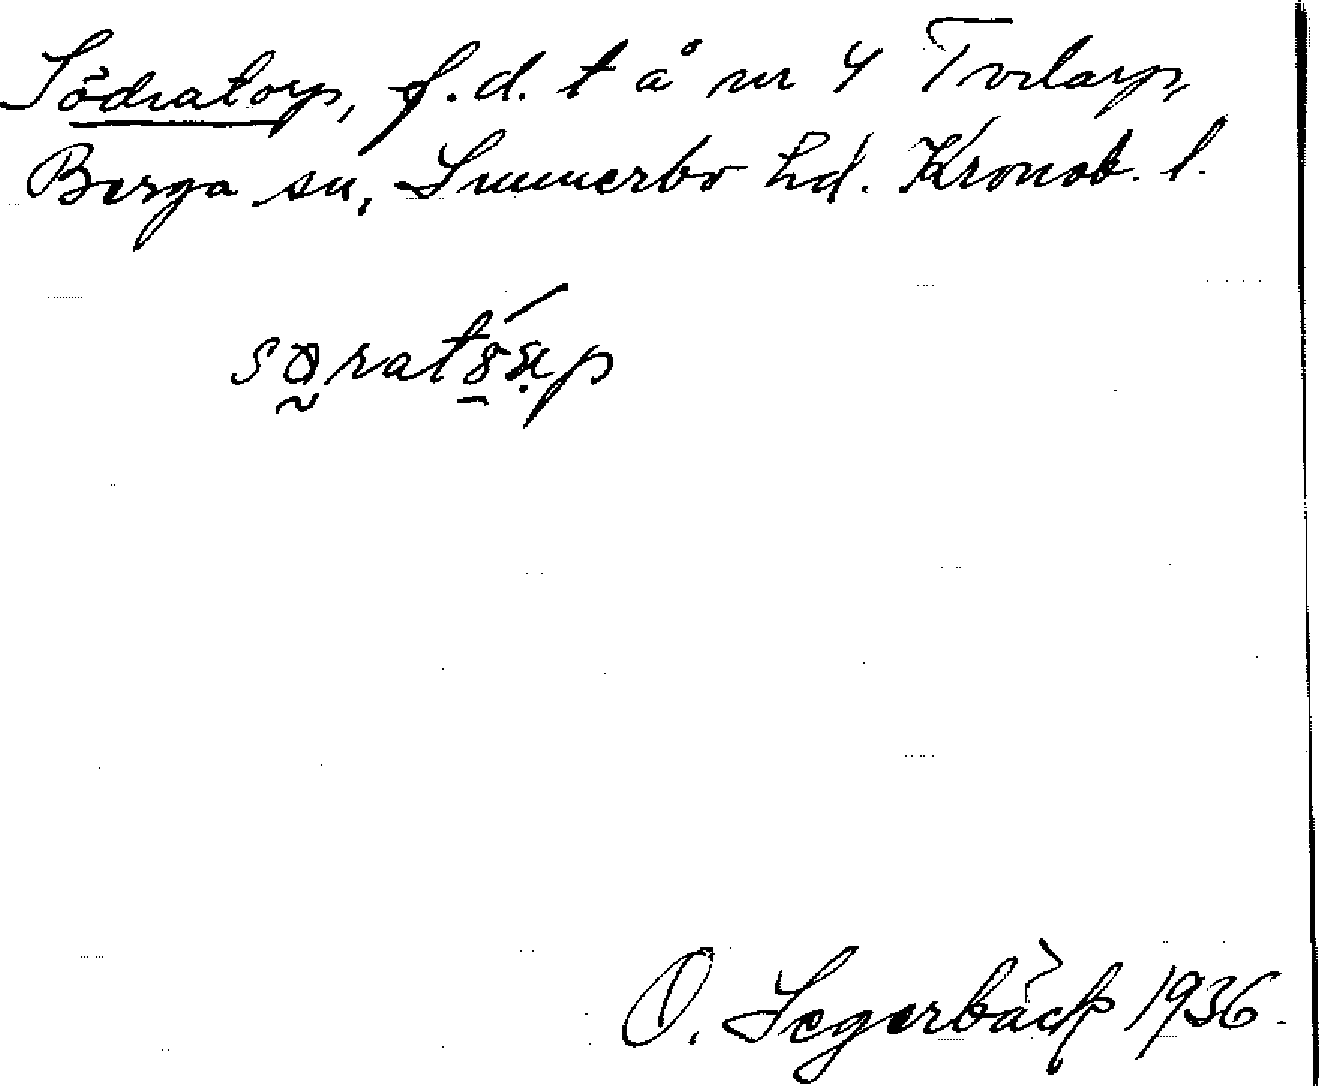 Södratorp, f.d. t å nr 4 Torlarp,
Berga sn, Sunnerbo hd. Kronob. l.
O. Segerbäck 1936.